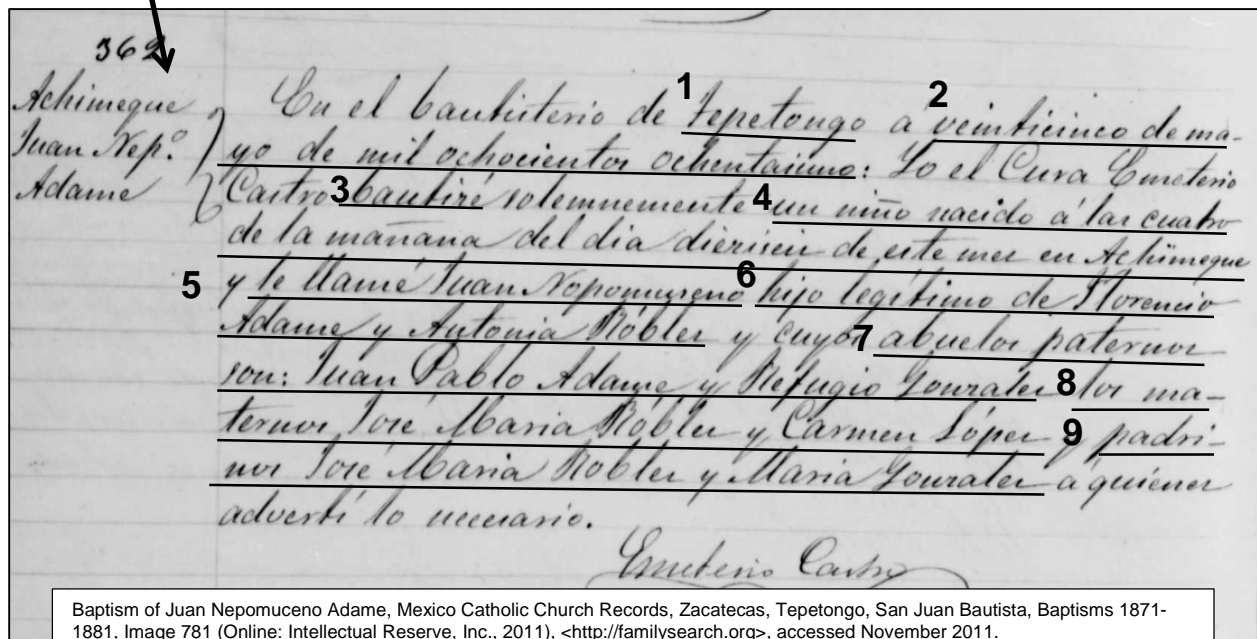 362
Achimeque
Juan Nep.º
Adame
1 2
En el bautisterio de Tepetongo a veinticinco de ma-
yo de mil ochocientos ochentaiuno: Yo el Cura Emeterio
Castro 3 bauticé solemnemente 4 un niño nacido á las cuatro
de la mañana del dia dieciseis de este mes en Achimeque
5 y le llamé Juan Nopomuseno 6 hijo legítimo de Florencio
Adame y Antonia Róbles y cuyos 7 abuelos paternos
son: Juan Pablo Adame y Refugio Gonzales 8 los ma-
ternos José Maria Róbles y Cármen López y 9 padri-
nos José Maria Robles y Maria Gonzales á quienes
advertí lo necesario.
Emeterio Castro
Baptism of Juan Nepomuceno Adame, Mexico Catholic Church Records, Zacatecas, Tepetongo, San Juan Bautista, Baptisms 1871-
1881, Image 781 (Online: Intellectual Reserve, Inc., 2011), <http://familysearch.org>, accessed November 2011.